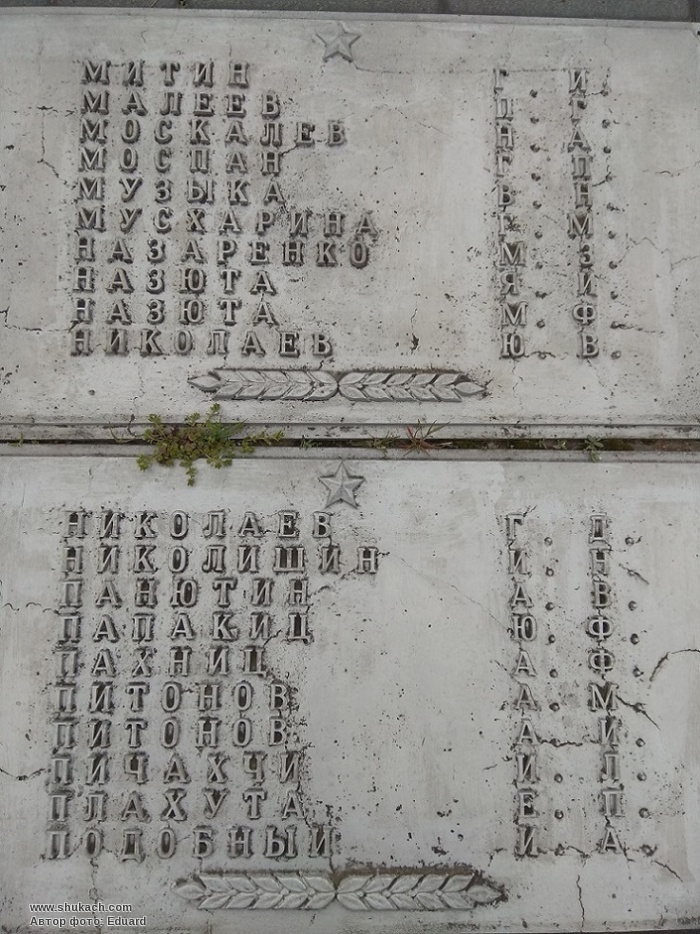 МИТИН Г. И.
МАЛЕЕВ П. Г.
МОСКАЛЕВ Н. А.
МОСПАН Г. П.
МУЗЫКА В. Н.
МУСХАРИНА Г. М.
НАЗАРЕНКО М. З.
НАЗЮТА Я. И.
НАЗЮТА М. Ф.
НИКОЛАЕВ Ю. В.
НИКОЛАЕВ Г. Д.
НИКОЛИШИН И. Н.
ПАНЮТИН А. В.
ПАПАКИЦ Ю. Ф.
ПАХНИЦ А. Ф.
ПИТОНОВ А. М.
ПИТОНОВ А. И.
ПИЧАХЧИ И. П.
ПЛАХУТА Е. П.
ПОДОБНЫЙ И. А.
www.shukach.com
Автор фото: Eduard